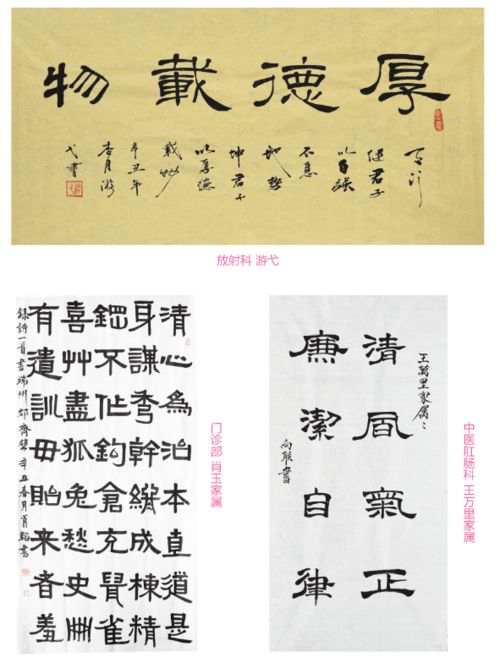 厚德載物
天行
健君子
以自强
不息
地势
坤君子
以厚德
載物
辛丑年
杏月游
弋書
放射科 游弋
清心為治本直道是
身謀秀幹終成棟精
鋼不作鉤倉充鼠雀
喜艸盡狐兔愁史冊
有遺訓毋貽来者羞
錄詩一首書端州郡齊壁辛丑春月肖書
门诊部 肖玉家属
清風氣正
廉潔自律
王萬里家属:
向联書
中医肛肠科 王万里家属